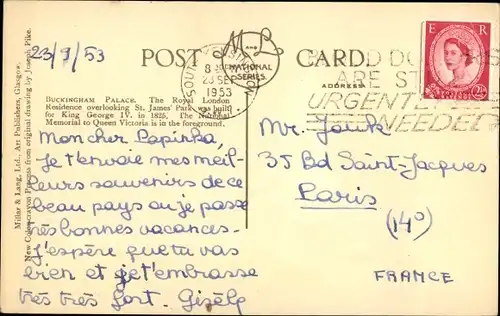 23/9/53
POST CARD.
M AND L
NATIONAL SERIES
ADDRESS
BUCKINGHAM PALACE. The Royal London
Residence overlooking St. James' Park was built
for King George IV. in 1825. The National
Memorial to Queen Victoria is in the foreground.
Millar & Lang, Ltd., Art Publishers, Glasgow.
New Colourcrayon Process from original drawing by Joseph Pike.
23 SEP
1953
BLOOD DONORS
ARE STILL
URGENTLY
NEEDED
E R
2½
Mon cher Papinka,
Je t'envoie mes meil-
leurs souvenirs de ce
beau pays où je passe
très bonnes vacances.
J'espère que tu vas
bien et je t'embrasse
très très fort. Gisèle
Mr.
35 Bd Saint-Jacques
Paris
(14°)
FRANCE